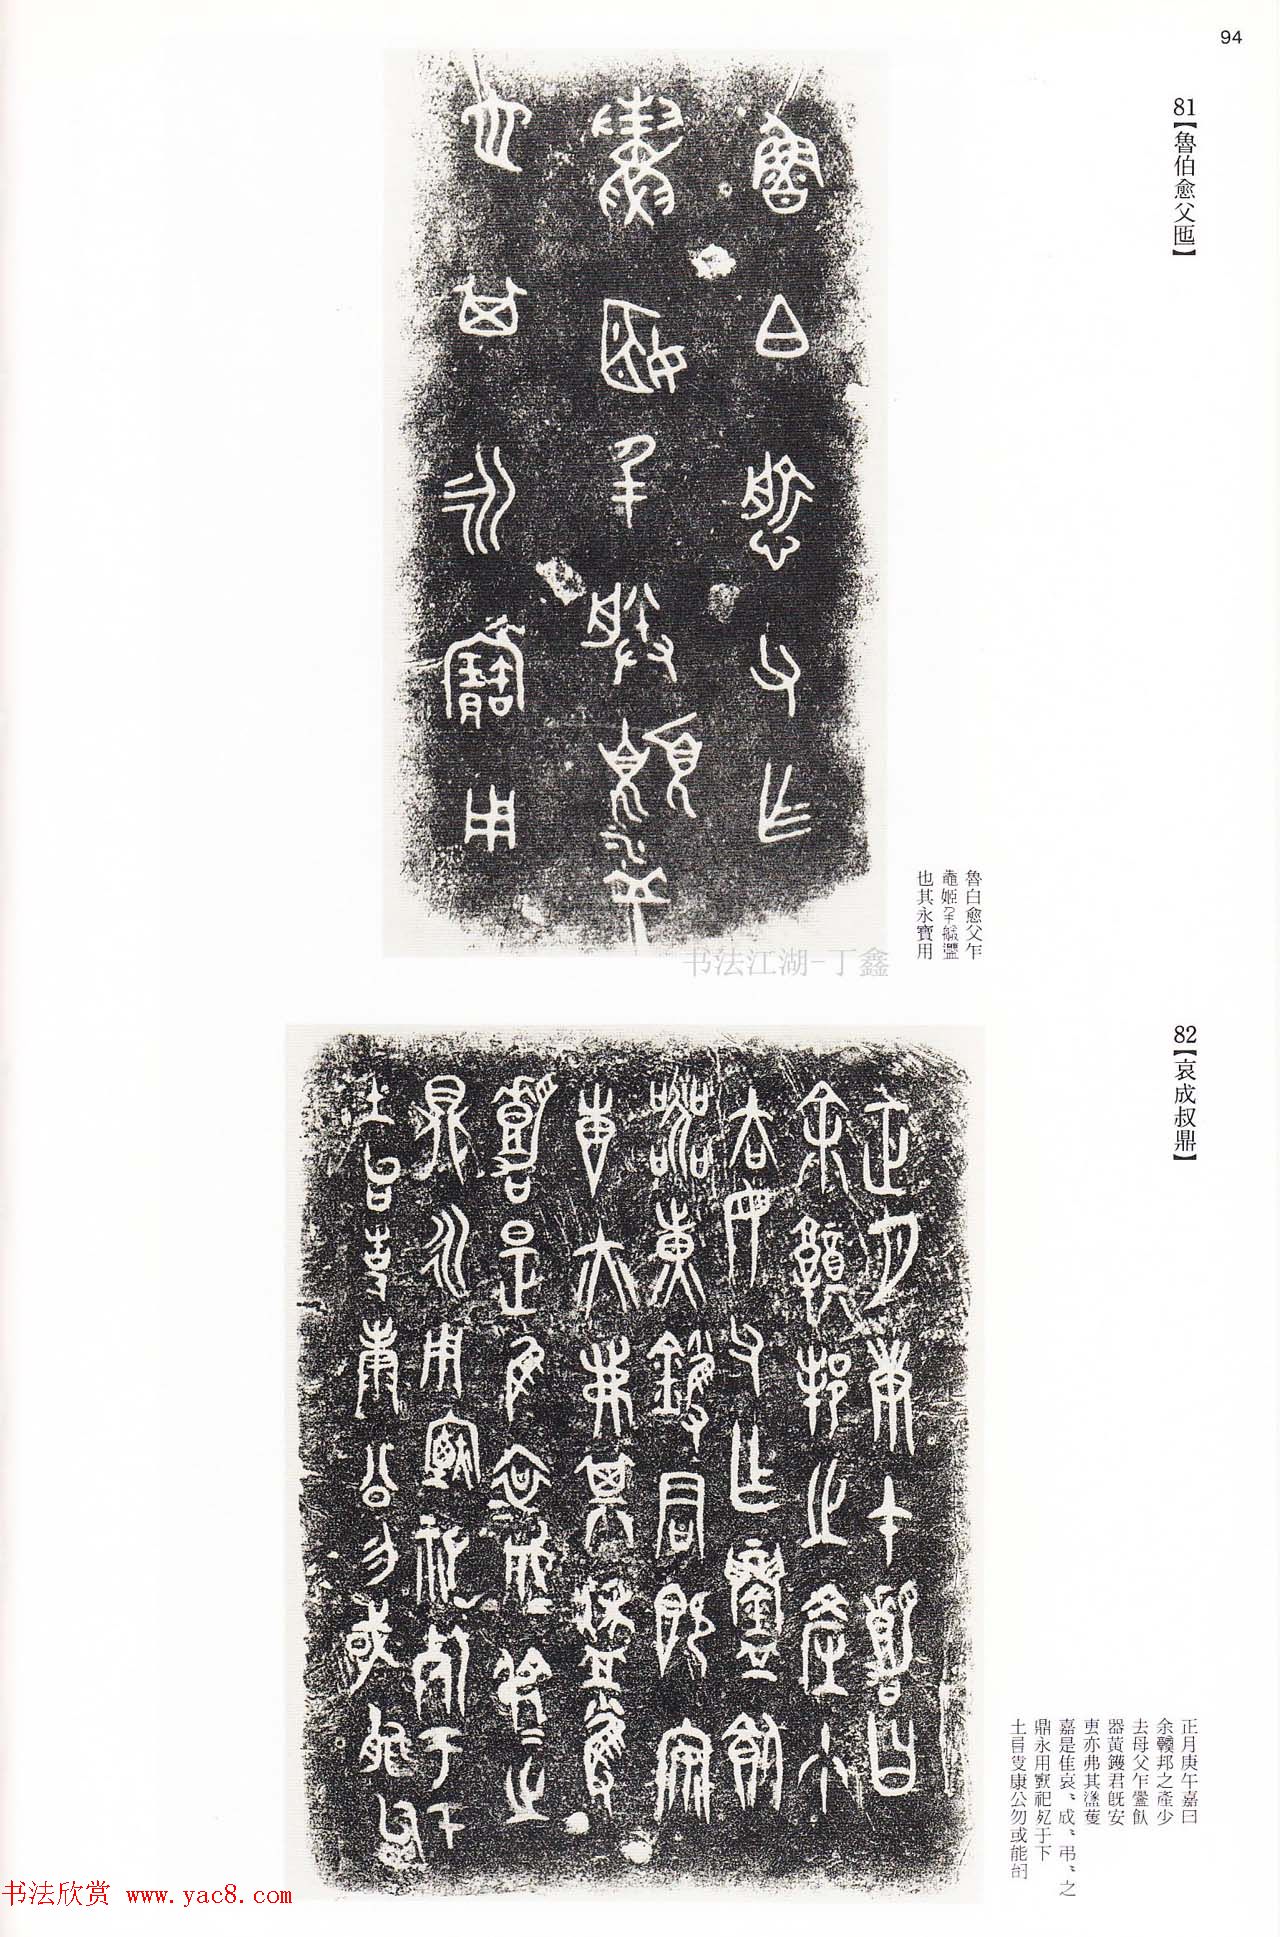 94
81【魯伯愈父匜】
魯白愈父乍
姬朕
也其永寶用
书法江湖-丁鑫
82【哀成叔鼎】
正月庚午嘉曰
余邦之產少
去母父乍飤
器黃鑊君既安
亦弗其
嘉是隹哀〻成〻弔〻之
鼎永用祀于下
土康公勿或能
书法欣赏 www.yac8.com